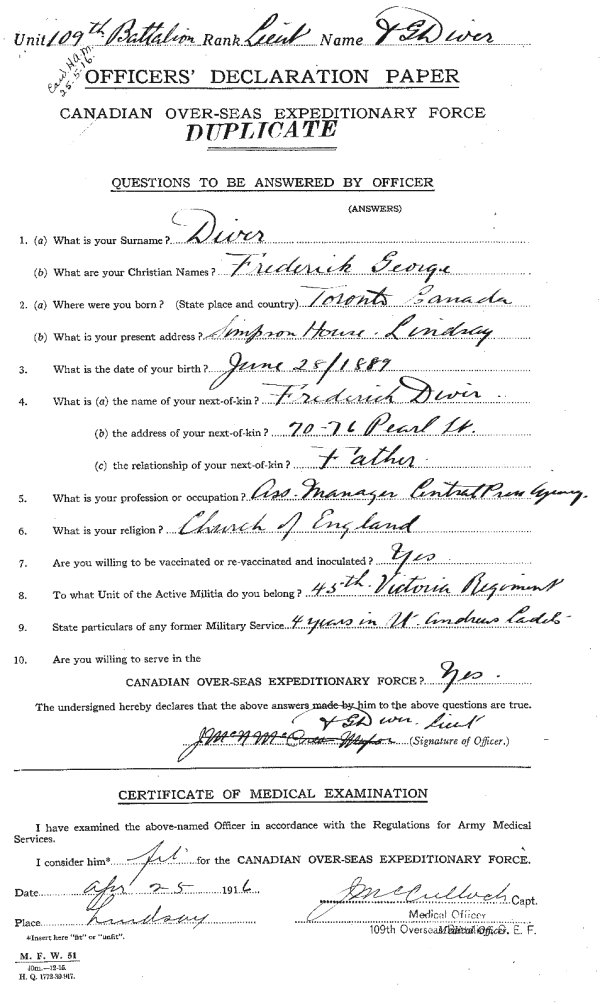 Unit 109th Battalion Rank Lieut Name F G Diver
25-5-16.
OFFICERS' DECLARATION PAPER
CANADIAN OVER-SEAS EXPEDITIONARY FORCE
DUPLICATE
QUESTIONS TO BE ANSWERED BY OFFICER
(ANSWERS)
1. (a) What is your Surname? Diver
(b) What are your Christian Names? Frederick George
2. (a) Where were you born? (State place and country) Toronto Canada
(b) What is your present address? Simpson House. Lindsay
3. What is the date of your birth? June 28/1889
4. What is (a) the name of your next-of-kin? Frederick Diver.
(b) the address of your next-of-kin? 70-76 Pearl St.
(c) the relationship of your next-of-kin? Father.
5. What is your profession or occupation? Ass. Manager Central Press Agency.
6. What is your religion? Church of England
7. Are you willing to be vaccinated or re-vaccinated and inoculated? Yes
8. To what Unit of the Active Militia do you belong? 45th Victoria Regiment
9. State particulars of any former Military Service. 4 years in St. Andrews Cadets
10. Are you willing to serve in the
CANADIAN OVER-SEAS EXPEDITIONARY FORCE? Yes.
The undersigned hereby declares that the above answers made by him to the above questions are true.
F G Diver. Lieut
(Signature of Officer.)
CERTIFICATE OF MEDICAL EXAMINATION
I have examined the above-named Officer in accordance with the Regulations for Army Medical
Services.
I consider him* fit for the CANADIAN OVER-SEAS EXPEDITIONARY FORCE.
Date Apr 25 1916
J McCulloch Capt.
Medical Officer
Place Lindsay
109th Overseas Battalion, C. E. F.
Medical Officer.
*Insert here "fit" or "unfit".
M. F. W. 51
40m.-12-15.
H. Q. 1772-39-917.